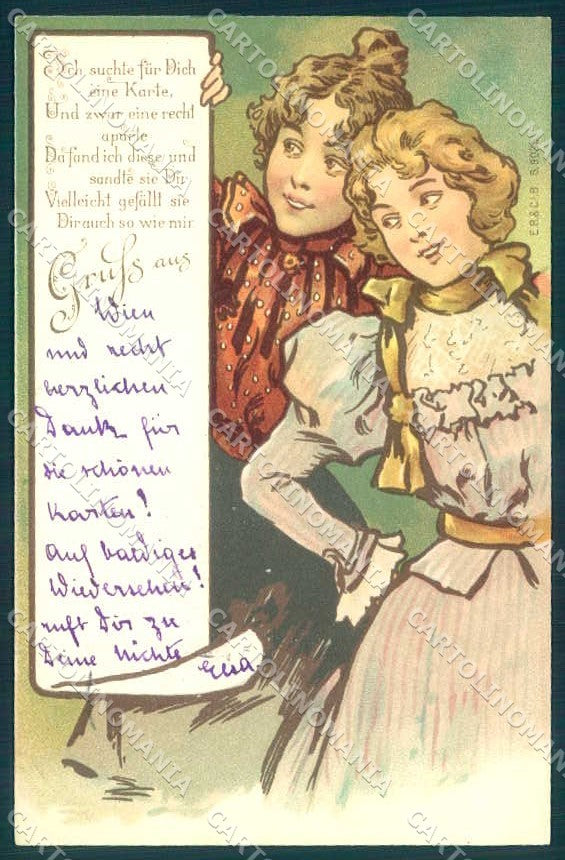 Ich suchte für Dich
eine Karte,
Und zwar eine recht
aparte
Da fand ich diese und
sandte sie Dir
Vielleicht gefällt sie
Dir auch so wie mir
Gruss aus
Wien
und recht
herzlichen
Dank für
die schönen
Karten!
Auf baldiges
Wiedersehen!
ruft Dir zu
Deine Nichte
CARTOLINOMANIA